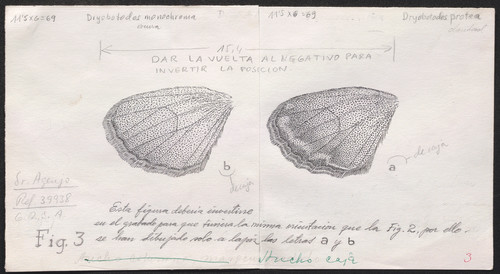 11'5 x 6 = 69
Dryobotodes monochroma
11'5 x 6 = 69
Dryobotodes protea
15,4
DAR LA VUELTA AL NEGATIVO PARA
INVERTIR LA POSICION
b
a
Sr. Agenjo
Ref 39928
Esta figura debería invertirse
en el grabado para que tuviera la misma orientación que la Fig. 2, por ello
se han dibujado solo a lápiz las letras a y b
Fig. 3
Ancho caja
3